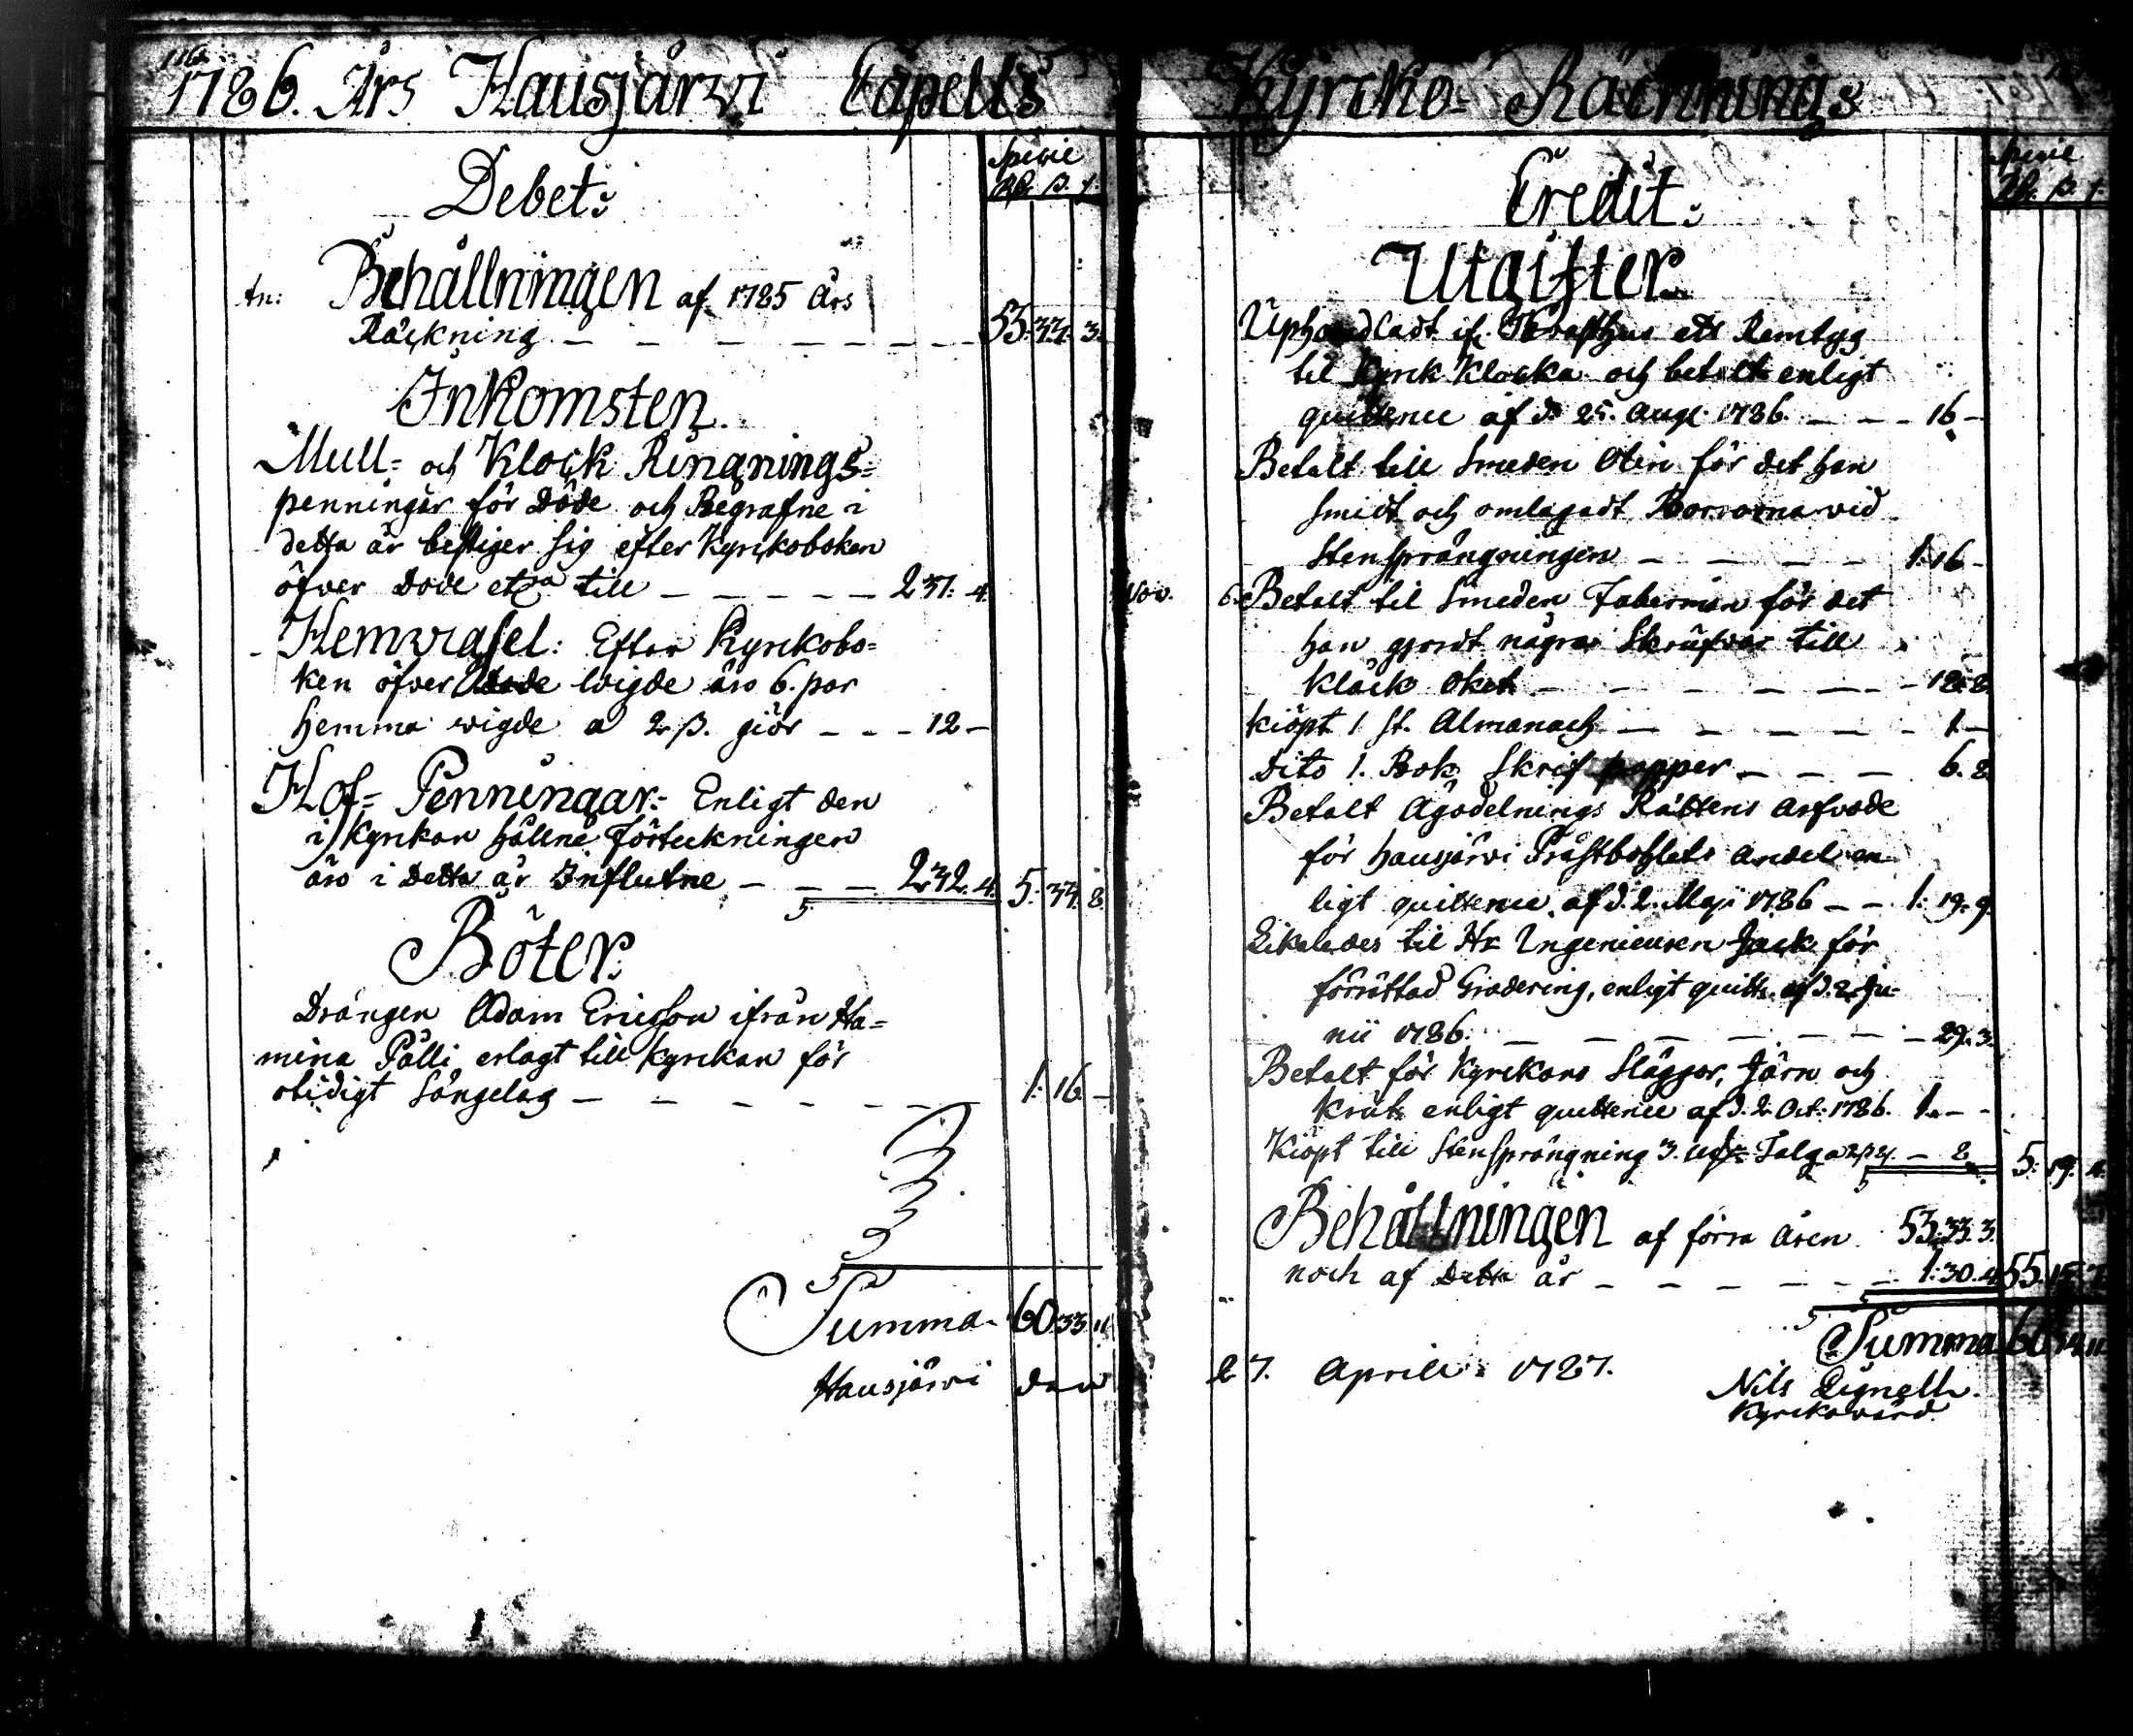 116.
1786. Års Hausjärwi Capells
Specie
Rd. ß. r.
Debet:
An: Behållningen af 1785 års
Räckning 53. 33. 3.
Inkomsten.
Mull- och Klock Ringnings-
penningar för Döde och Begrafne i
detta år bestiger sig efter Kyrckoboken
öfver Döde etra till 2 31. 4.
Hemvigsel: Efter Kyrckobo-
ken öfver Wigde äro 6. par
hemma wigde a 2 ß. giör 12 -
Hof- Penningar: Enligt den
i Kyrkan hållne Förteckningen
äro i Detta år Influtne 2 32. 4. 5. 33. 8.
Böter:
Drängen Adam Ericsson ifrån Ha-
mina Pälli erlagt till kyrckan för
otidigt Sängelag 1. 16 -
Summa 60. 33. 11.
Hausjärwi den
Kyrcko- Räcknings
Specie
Rd. ß. r.
Credit:
Utgifter
Uphandladt ett Remtyg
til Kyrck Klocka och betalt enligt
quittence af d. 25. Aug. 1786. 16 -
Betalt till Smeden Olin för det han
smidt och omlagadt Borrarna vid
Stensprängningen 1. 16 -
Nov. 6. Betalt til Smeden Faberman för det
han gjordt några Skrufvar till
Klock Oket 12. 8.
Kiöpt 1 st. Almanach 1 -
Dito 1. Bok Skrif papper 6. 8.
Betalt Ägodelnings Rättens Arfvode
för Hausjärvi Prästbohlets andel en-
ligt quittence af d. 2. Maji 1786 1. 19. 9.
Likaledes til Hr Ingenieuren för
förrättad Gradering, enligt quitt. af d. 2. Ju-
nii 1786. 29. 3.
Betalt för Kyrckans Släggor, Järn och
Krut enligt quittence af d. 2 Oct: 1786. 1. - -
Kiöpt till Stensprängning 3. Talg a 2 ß 8 5. 19. 4.
Behållningen af förra åren 53. 33. 3.
noch af Detta år 1. 30. 4. 55. 15. 7.
Summa 60. 34. 11.
27. Aprill 1787.
Nils Lignell.
Kyrckovärd.